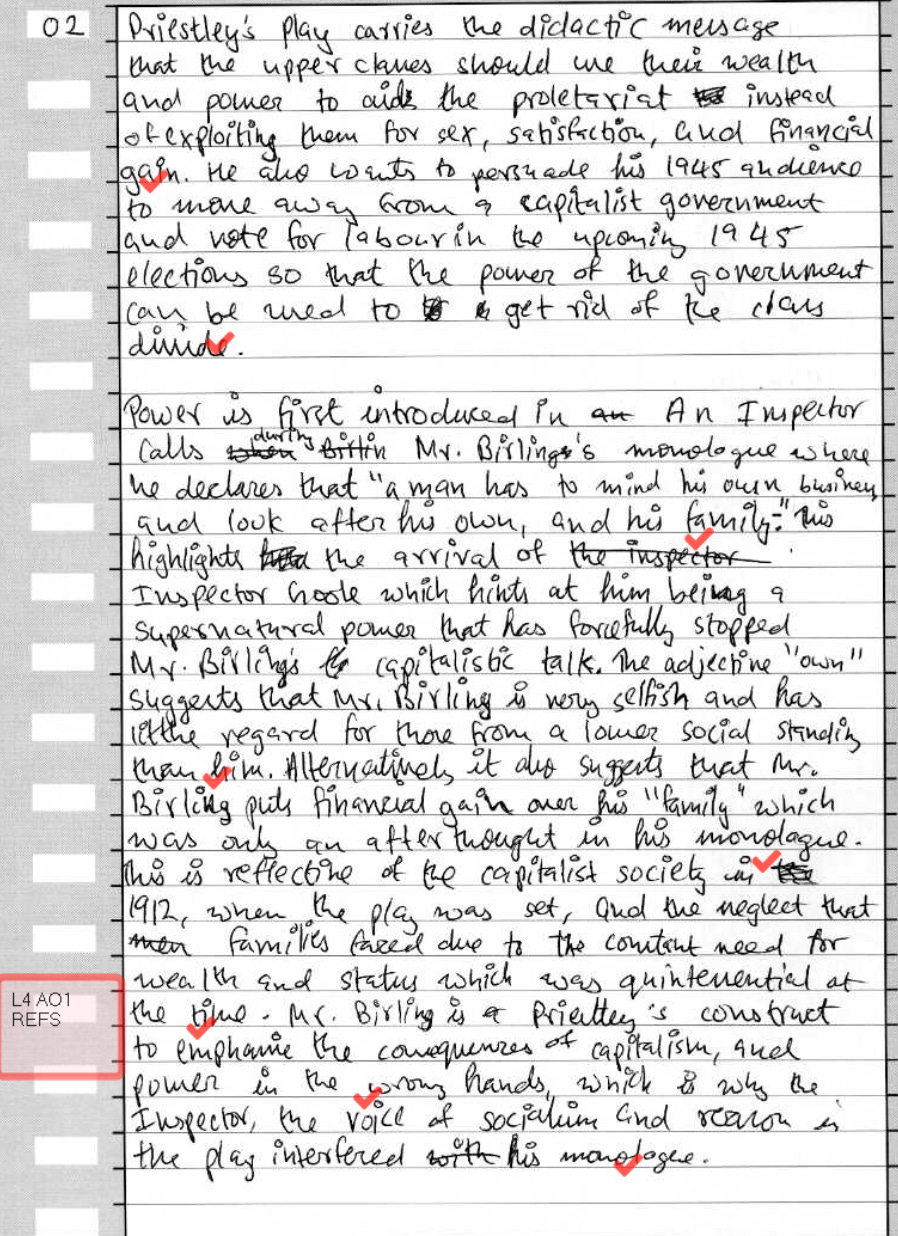 02
Priestley's play carries the didactic message
that the upper classes should use their wealth
and power to aid the proletariat instead
of exploiting them for sex, satisfaction, and financial
gain. He also wants to persuade his 1945 audience
to move away from a capitalist government
and vote for labour in the upcoming 1945
elections so that the power of the government
can be used to get rid of the class
divide.
Power is first introduced in An Inspector
Calls during Mr. Birling's monologue where
he declares that "a man has to mind his own business
and look after his own, and his family-" This
highlights the arrival of the inspector
Inspector Goole which hints at him being a
supernatural power that has forcefully stopped
Mr. Birling's capitalistic talk. The adjective "own"
suggests that Mr. Birling is very selfish and has
little regard for those from a lower social standing
than him. Alternatively it also suggests that Mr.
Birling puts financial gain over his "family" which
was only an afterthought in his monologue.
This is reflective of the capitalist society in
1912, when the play was set, and the neglect that
families faced due to the constant need for
wealth and status which was quintessential at
L4 AO1
REFS
the time. Mr. Birling is Priestley's construct
to emphasise the consequences of capitalism, and
power in the wrong hands, which is why the
Inspector, the voice of socialism and reason in
the play interfered with his monologue.